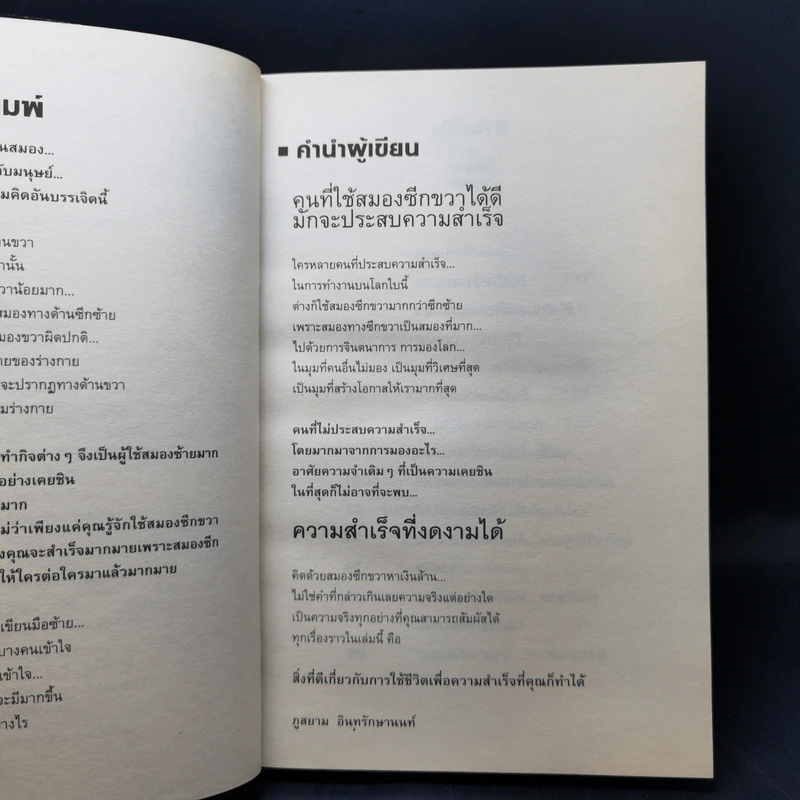 มพ์
นสมอง...
ับมนุษย์...
มคิดอันบรรเจิดนี้
นขวา
านั้น
วาน้อยมาก...
สมองทางด้านซีกซ้าย
มองขวาผิดปกติ...
ายของร่างกาย
จะปรากฏทางด้านขวา
มร่างกาย
ทำกิจต่าง ๆ จึงเป็นผู้ใช้สมองซ้ายมาก
อย่างเคยชิน
มาก
ม่ว่าเพียงแค่คุณรู้จักใช้สมองซีกขวา
งคุณจะสำเร็จมากมายเพราะสมองซีก
ให้ใครต่อใครมาแล้วมากมาย
เขียนมือซ้าย...
บางคนเข้าใจ
เข้าใจ...
จะมีมากขึ้น
างไร
■ คำนำผู้เขียน
คนที่ใช้สมองซีกขวาได้ดี
มักจะประสบความสำเร็จ
ใครหลายคนที่ประสบความสำเร็จ...
ในการทำงานบนโลกใบนี้
ต่างก็ใช้สมองซีกขวามากกว่าซีกซ้าย
เพราะสมองทางซีกขวาเป็นสมองที่มาก...
ไปด้วยการจินตนาการ การมองโลก...
ในมุมที่คนอื่นไม่มอง เป็นมุมที่วิเศษที่สุด
เป็นมุมที่สร้างโอกาสให้เรามากที่สุด
คนที่ไม่ประสบความสำเร็จ...
โดยมากมาจากการมองอะไร...
อาศัยความจำเดิม ๆ ที่เป็นความเคยชิน
ในที่สุดก็ไม่อาจที่จะพบ...
ความสำเร็จที่งดงามได้
คิดด้วยสมองซีกขวาหาเงินล้าน...
ไม่ใช่คำที่กล่าวเกินเลยความจริงแต่อย่างใด
เป็นความจริงทุกอย่างที่คุณสามารถสัมผัสได้
ทุกเรื่องราวในเล่มนี้ คือ
สิ่งที่ดีเกี่ยวกับการใช้ชีวิตเพื่อความสำเร็จที่คุณก็ทำได้
ภูสยาม อินทุรักษานนท์